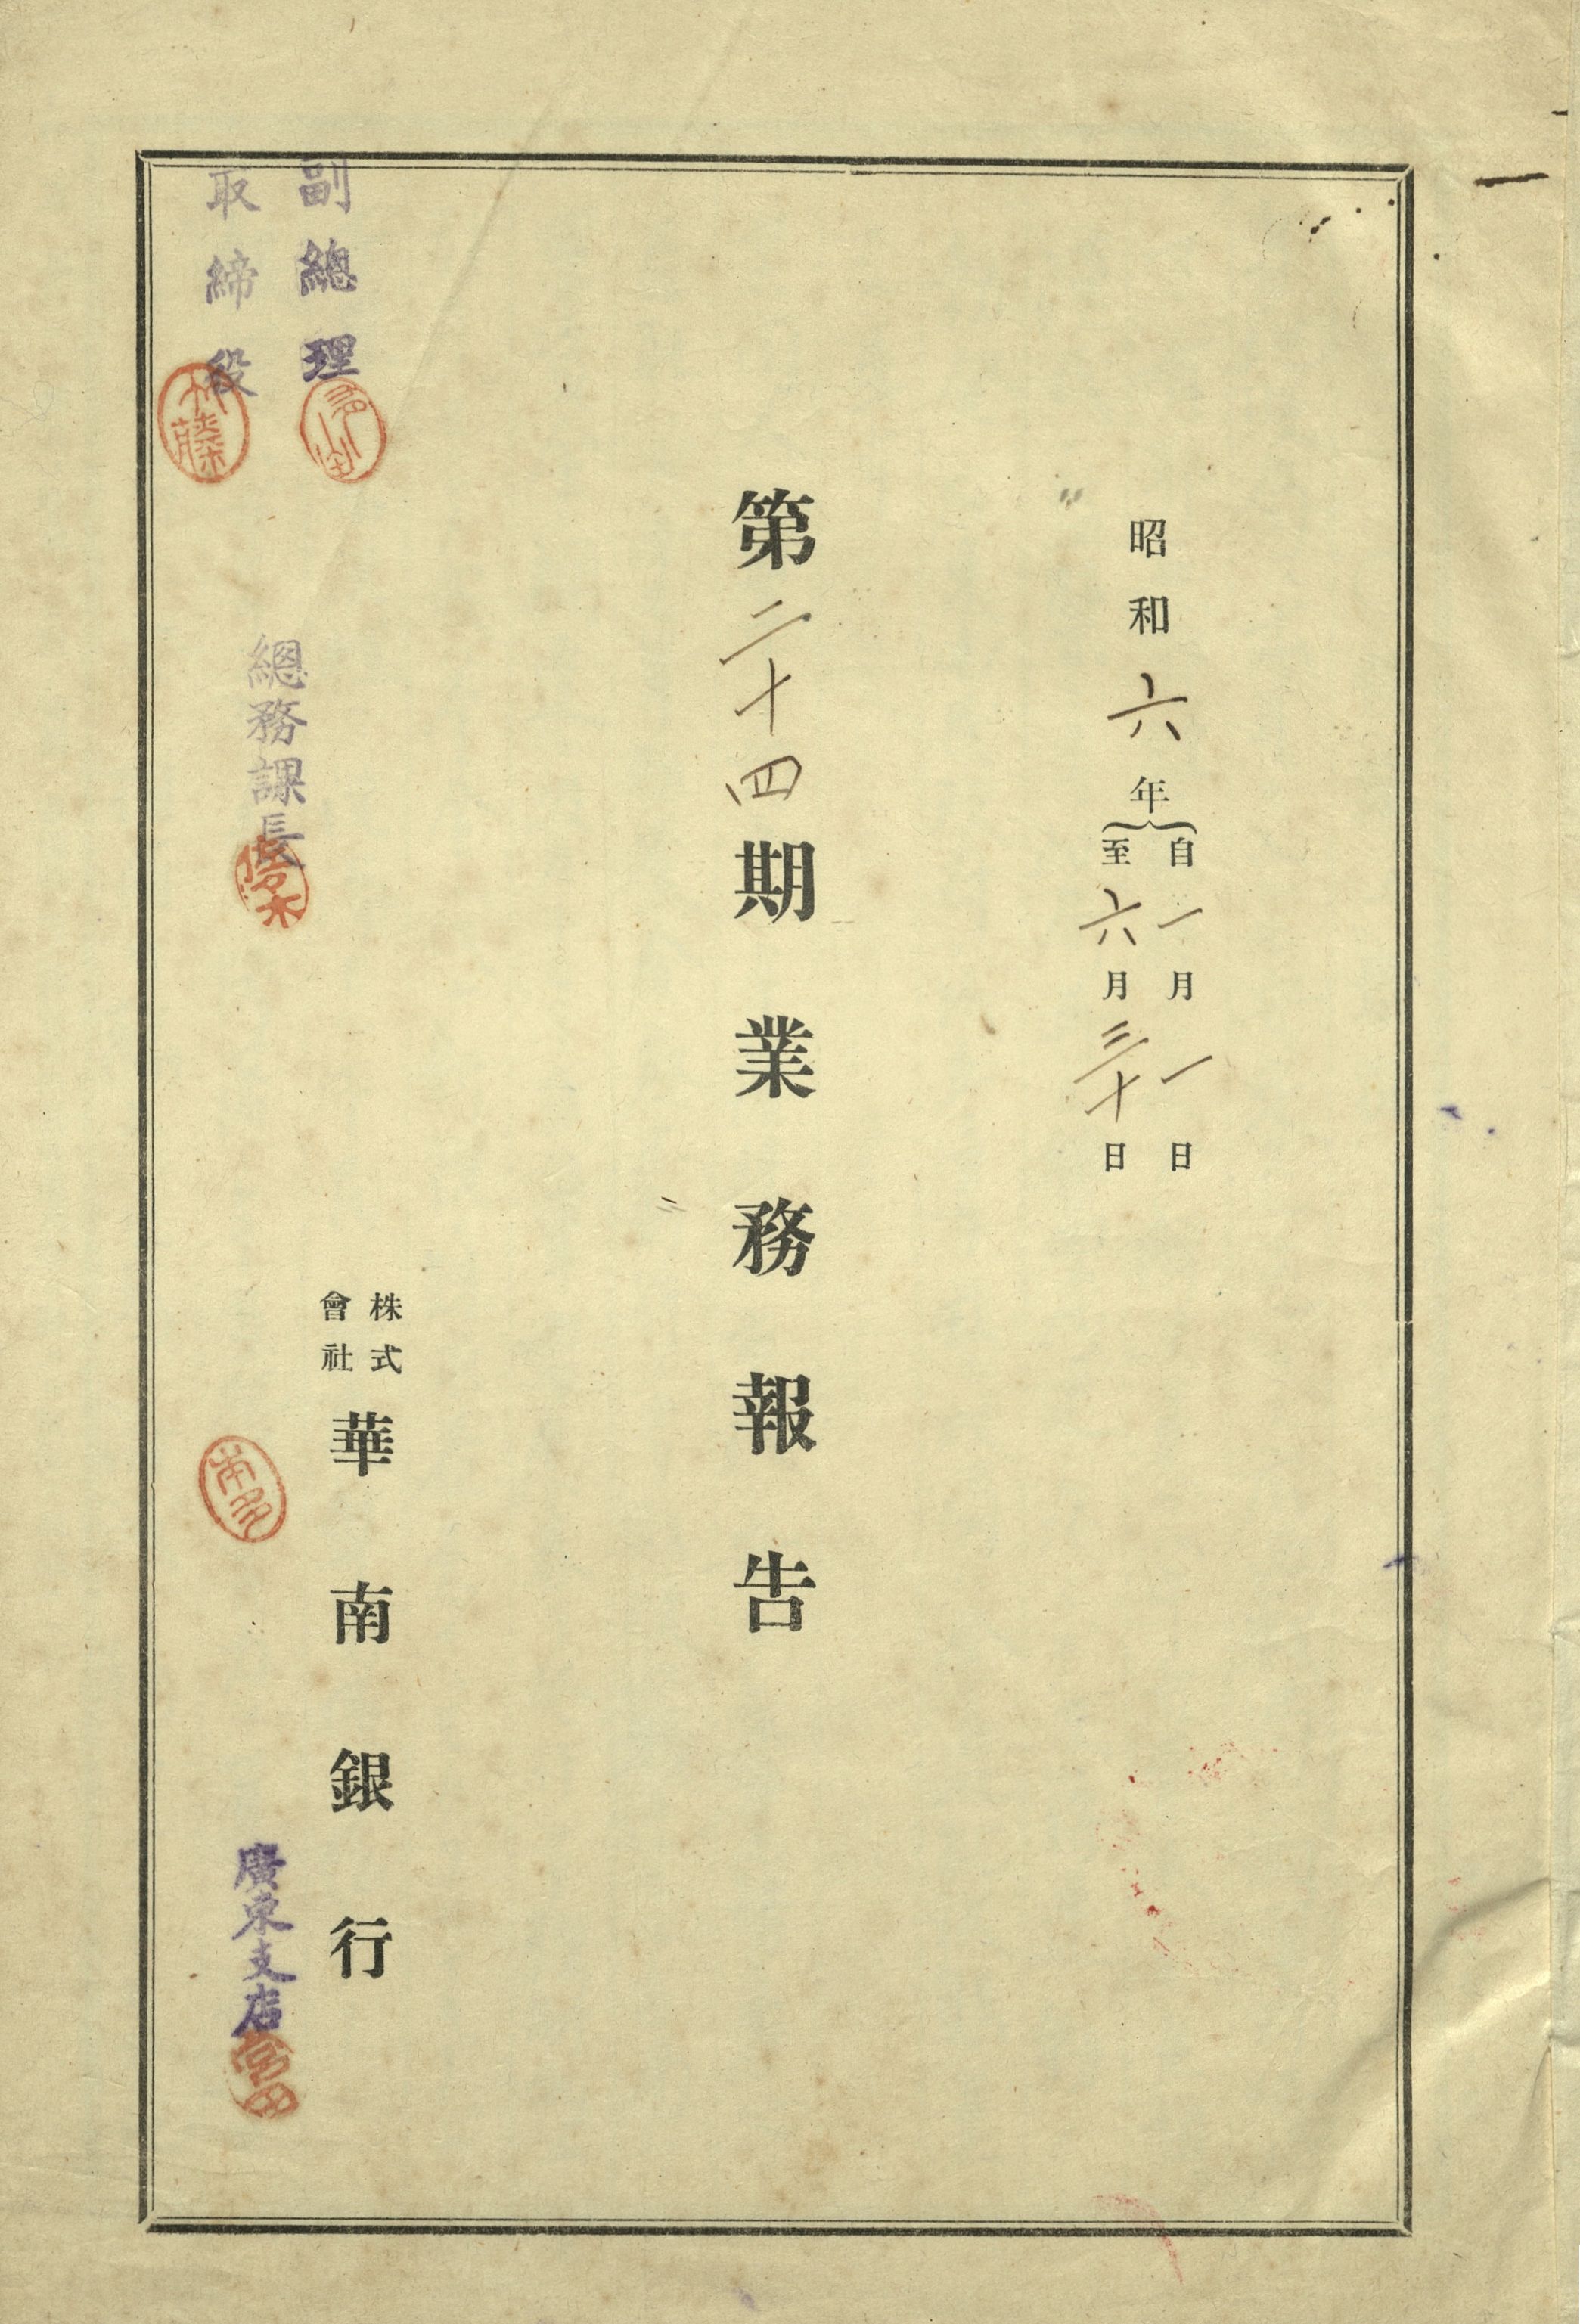 昭和六年
自一月一日
至六月三十日
第二十四期業務報告
株式
會社
華南銀行
副總理
取締役
總務課長
佐々木
廣東支店
富田